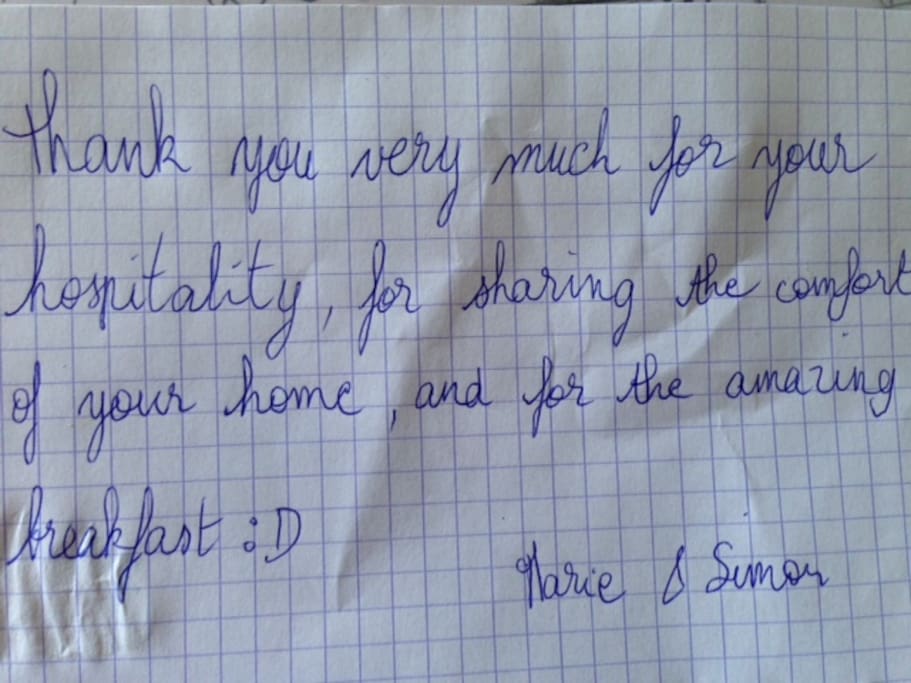 Thank you very much for your
hospitality, for sharing the comfort
of your home, and for the amazing
breakfast :D
Marie & Simon